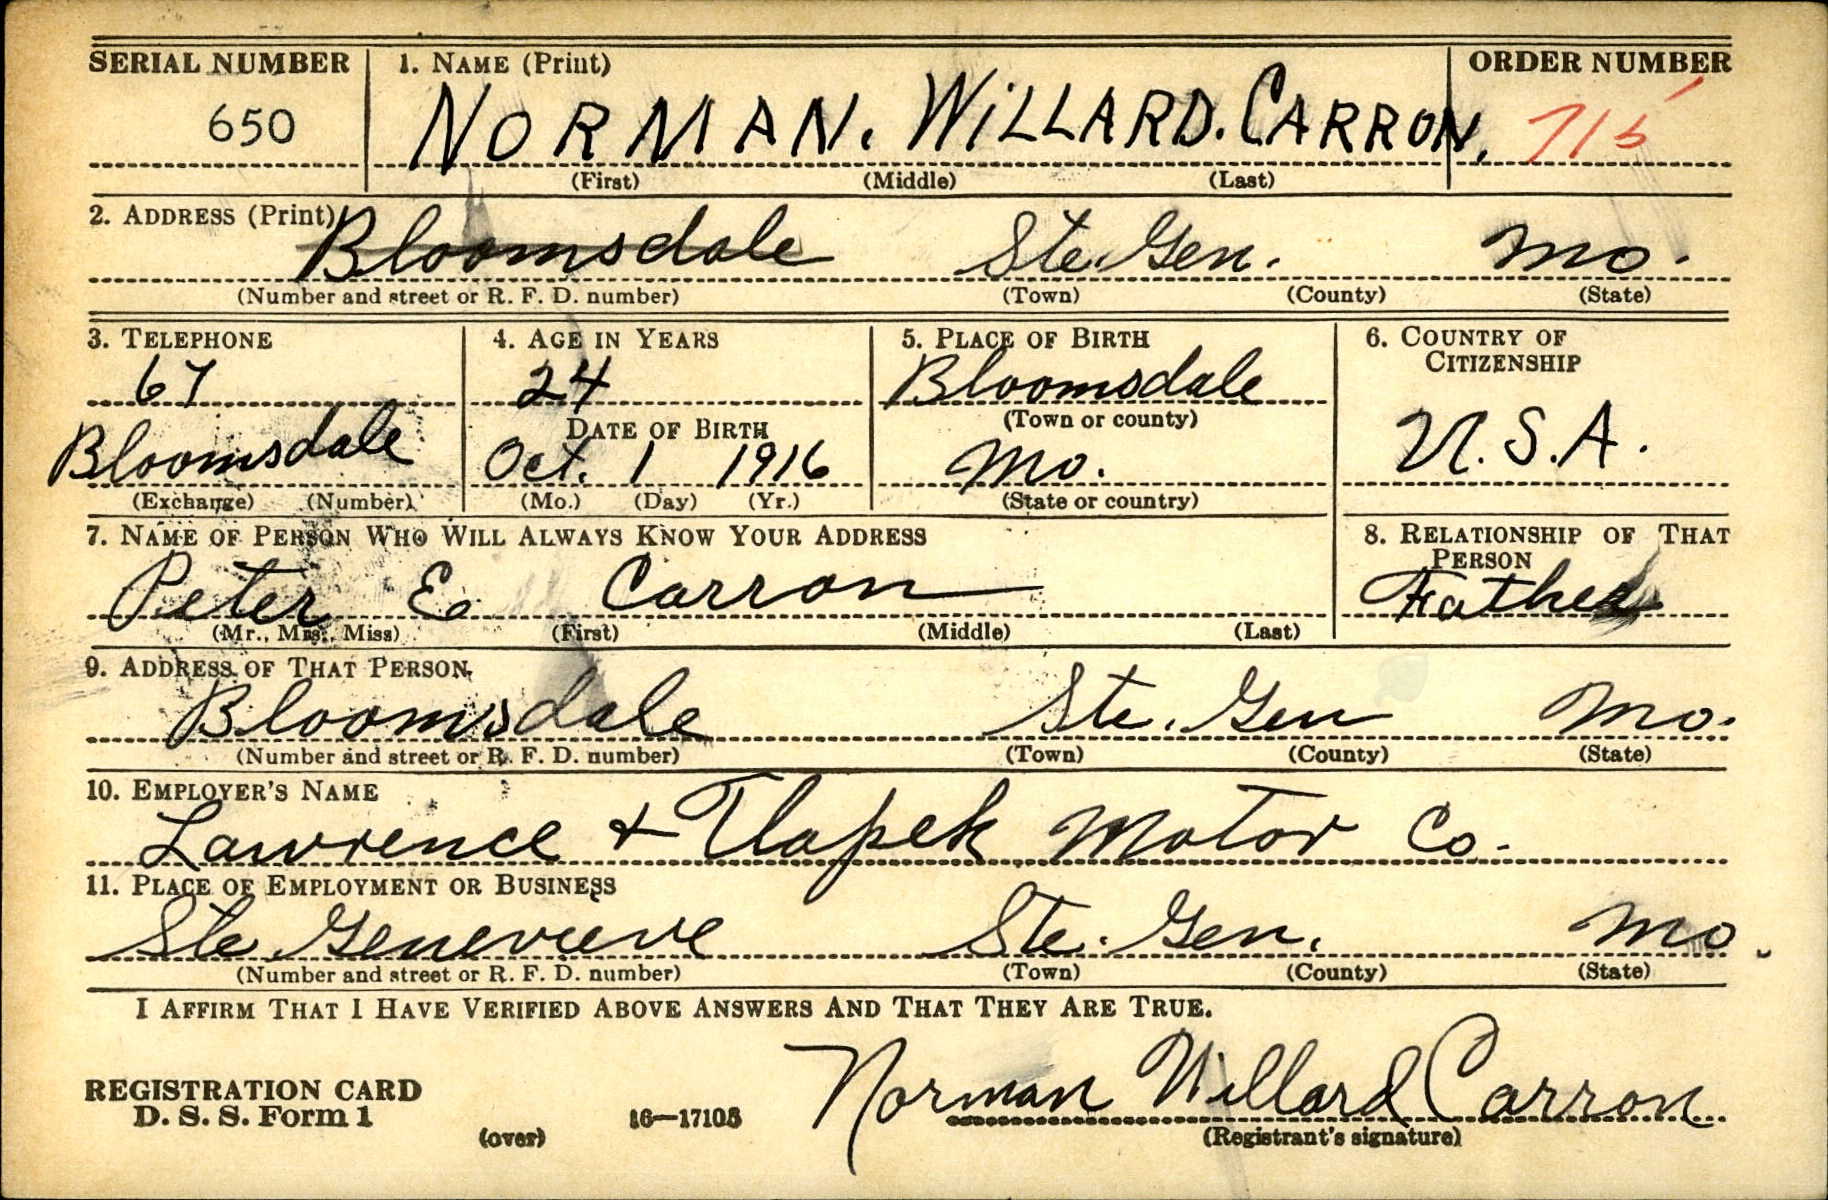 SERIAL NUMBER 1. NAME (Print) ORDER NUMBER
650 NORMAN. WILLARD. CARRON. 715
(First) (Middle) (Last)
2. ADDRESS (Print)
Bloomsdale Ste. Gen. Mo.
(Number and street or R. F. D. number) (Town) (County) (State)
3. TELEPHONE 4. AGE IN YEARS 5. PLACE OF BIRTH 6. COUNTRY OF
CITIZENSHIP
67 24 Bloomsdale
DATE OF BIRTH (Town or county)
Bloomsdale Oct. 1 1916 Mo. U.S.A.
(Exchange) (Number) (Mo.) (Day) (Yr.) (State or country)
7. NAME OF PERSON WHO WILL ALWAYS KNOW YOUR ADDRESS 8. RELATIONSHIP OF THAT
PERSON
Peter E Carron Father
(Mr., Mrs., Miss) (First) (Middle) (Last)
9. ADDRESS OF THAT PERSON
Bloomsdale Ste. Gen Mo.
(Number and street or R. F. D. number) (Town) (County) (State)
10. EMPLOYER'S NAME
Lawrence + Tlapek Motor Co.
11. PLACE OF EMPLOYMENT OR BUSINESS
Ste. Genevieve Ste. Gen. Mo.
(Number and street or R. F. D. number) (Town) (County) (State)
I AFFIRM THAT I HAVE VERIFIED ABOVE ANSWERS AND THAT THEY ARE TRUE.
REGISTRATION CARD Norman Willard Carron
D. S. S. Form 1 (over) 16—17105 (Registrant's signature)